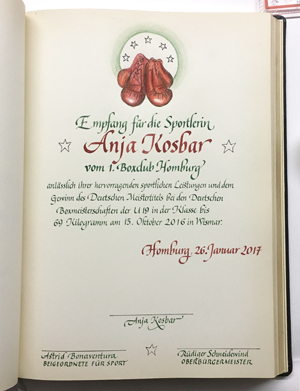 Empfang für die Sportlerin
Anja Kosbar
vom 1. Boxclub Homburg
anlässlich ihrer hervorragenden sportlichen Leistungen und dem
Gewinn des Deutschen Meistertitels bei den Deutschen
Boxmeisterschaften der U19 in der Klasse bis
69 Kilogramm am 15. Oktober 2016 in Wismar.
Homburg, 26. Januar 2017
Anja Kosbar
Astrid Bonaventura
BEIGEORDNETE FÜR SPORT
Rüdiger Schneidewind
OBERBÜRGERMEISTER